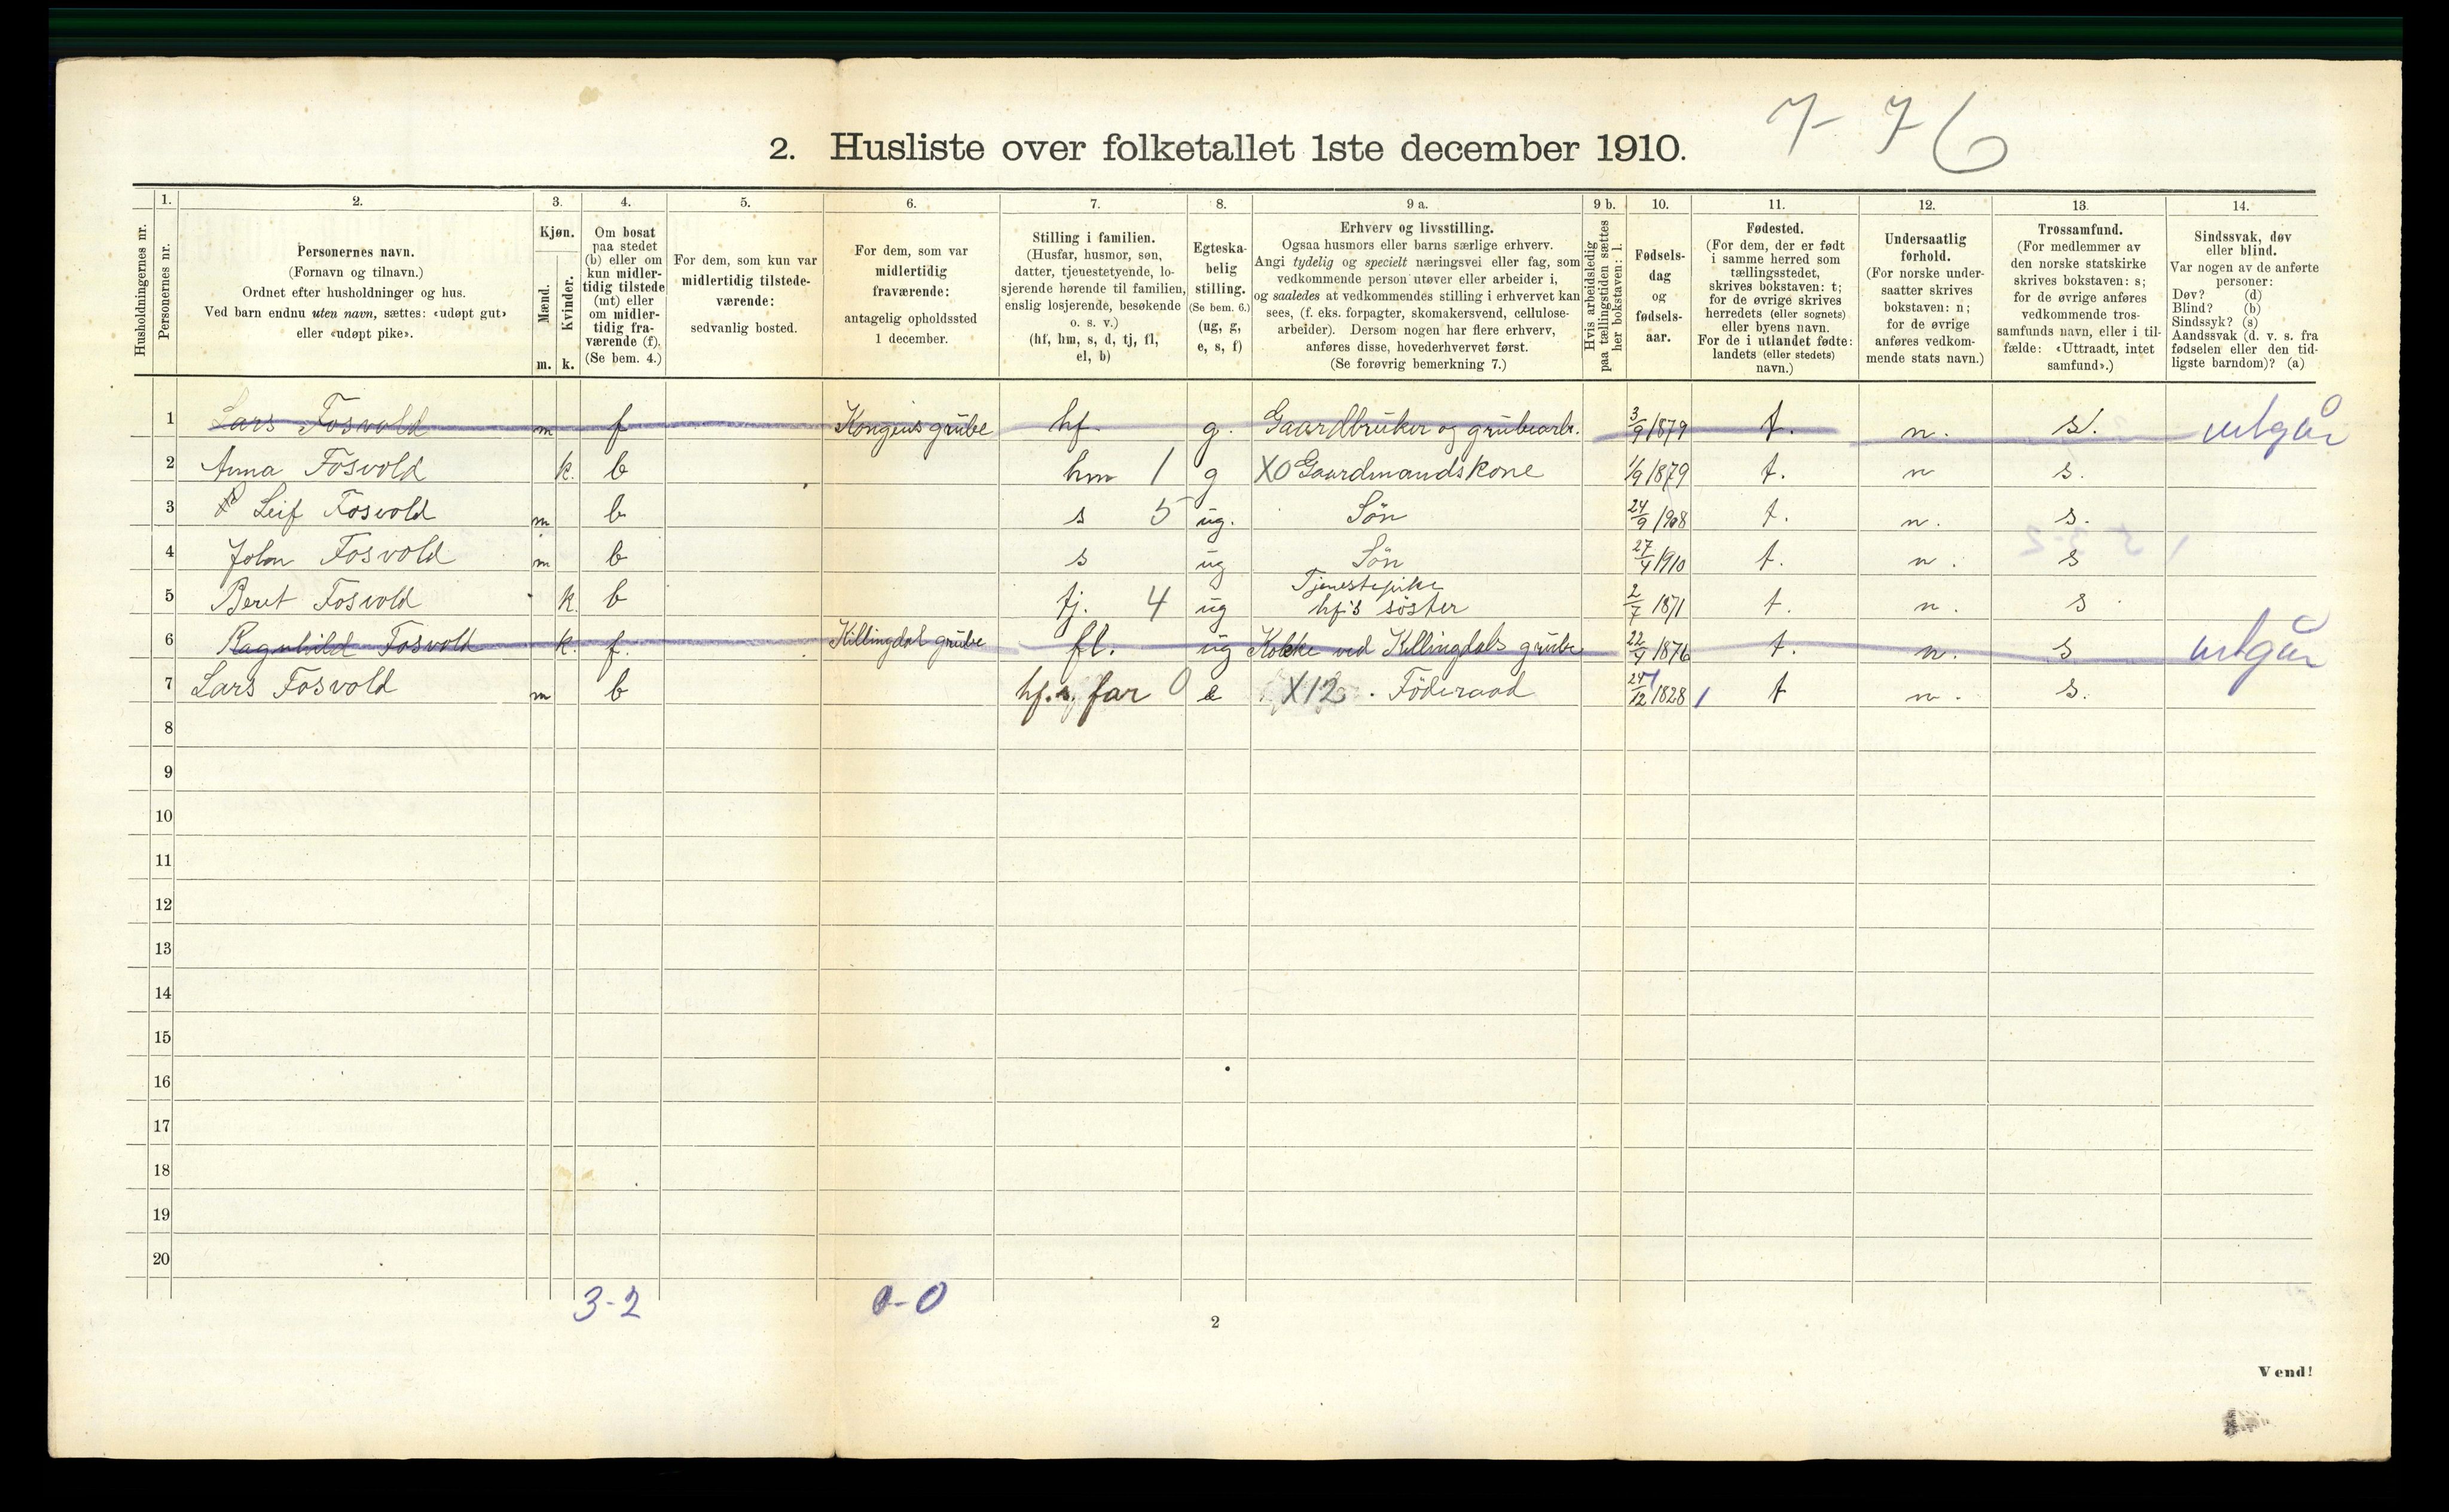 7-76
2. Husliste over folketallet 1ste december 1910.
Husholdningernes nr.
1.
Personernes nr.
2.
Personernes navn.
(Fornavn og tilnavn.)
Ordnet efter husholdninger og hus.
Ved barn endnu uten navn, sættes: «udøpt gut»
eller «udøpt pike».
3.
Kjøn.
Mænd.
Kvinder.
m. k.
4.
Om bosat
paa stedet
(b) eller om
kun midler-
tidig tilstede
(mt) eller
om midler-
tidig fra-
værende (f).
(Se bem. 4.)
5.
For dem, som kun var
midlertidig tilstede-
værende:
sedvanlig bosted.
6.
For dem, som var
midlertidig
fraværende:
antagelig opholdssted
1 december.
7.
Stilling i familien.
(Husfar, husmor, søn,
datter, tjenestetyende, lo-
sjerende hørende til familien,
enslig losjerende, besøkende
o. s. v.)
(hf, hm, s, d, tj, fl,
el, b)
8.
Egteska-
belig
stilling.
(Se bem. 6.)
(ug, g,
e, s, f)
9 a.
Erhverv og livsstilling.
Ogsaa husmors eller barns særlige erhverv.
Angi tydelig og specielt næringsvei eller fag, som
vedkommende person utøver eller arbeider i,
og saaledes at vedkommendes stilling i erhvervet kan
sees, (f. eks. forpagter, skomakersvend, cellulose-
arbeider). Dersom nogen har flere erhverv,
anføres disse, hovederhvervet først.
(Se forøvrig bemerkning 7.)
9 b.
Hvis arbeidsledig
paa tællingstiden sættes
her bokstaven: l.
10.
Fødsels-
dag
og
fødsels-
aar.
11.
Fødested.
(For dem, der er født
i samme herred som
tællingsstedet,
skrives bokstaven: t;
for de øvrige skrives
herredets (eller sognets)
eller byens navn.
For de i utlandet fødte:
landets (eller stedets)
navn.)
12.
Undersaatlig
forhold.
(For norske under-
saatter skrives
bokstaven: n;
for de øvrige
anføres vedkom-
mende stats navn.)
13.
Trossamfund.
(For medlemmer av
den norske statskirke
skrives bokstaven: s;
for de øvrige anføres
vedkommende tros-
samfunds navn, eller i til-
fælde: «Uttraadt, intet
samfund».)
14.
Sindssvak, døv
eller blind.
Var nogen av de anførte
personer:
Døv? (d)
Blind? (b)
Sindssyk? (s)
Aandssvak (d. v. s. fra
fødselen eller den tid-
ligste barndom)? (a)
1 Lars Fosvold m f Kongens grube hf g. Gaardbruker og grubearb. 3/9 1879 t. n. s. utgår
2 Anna Fosvold k. b hm 1 g X0 Gaardmandskone 1/9 1879 t. n s.
3 Leif Fosvold m b s 5 ug. Søn 24/9 1908 t. n. s.
4 John Fosvold m b s ug Søn 27/4 1910 t. n. s
5 Beret Fosvold k. b tj. 4 ug Tjenestepike
hf's søster 2/7 1871 t. n. s.
6 Ragnhild Fosvold k. f. Killingdal grube fl. ug Kokke ved Killingdals grube 22/4 1876 t. n. s utgår
7 Lars Fosvold m b hf.s. far 0 e X12 Føderaad 24/12 1828 1 t n. s.
8
9
10
11
12
13
14
15
16
17
18
19
20
3-2 0-0
2
Vend!